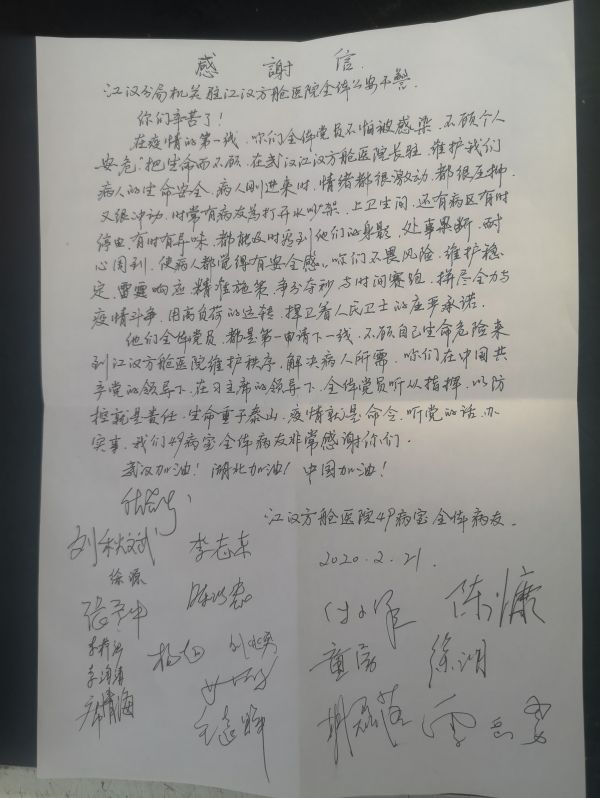 感謝信
江汉分局机关驻江汉方舱医院全体公安干警.
你们辛苦了!
在疫情的第一线,你们全体党员不怕被感染,不顾个人
安危,把生命而不顾,在武汉江汉方舱医院长驻,维护我们
病人的生命安全,病人刚进来时,情绪都很激动,都很压抑
又很冲动,时常有病友为打开水吵架,上卫生间,还有病区有时
停电,有时有异味,都能及时看到他们的身影,处事果断,耐
心周到,使病人都觉得有安全感,你们不畏风险,维护稳
定,雷霆响应,精准施策,争分夺秒,与时间赛跑,拼尽全力与
疫情斗争,因高负荷的运转,捍卫着人民卫士的庄严承诺.
他们全体党员,都是第一申请下一线,不顾自己生命危险来
到江汉方舱医院维护秩序,解决病人所需,你们在中国共
产党的领导下,在习主席的领导下,全体党员听从指挥,以防
控就是责任,生命重于泰山,疫情就是命令,听党的话,办
实事,我们49病室全体病友非常感谢你们.
武汉加油!湖北加油!中国加油!
江汉方舱医院49病室全体病友.
刘秋斌 李志东
2020.2.21.
徐源
陈慷
杨旭
童高 徐明
李海清
席晴海